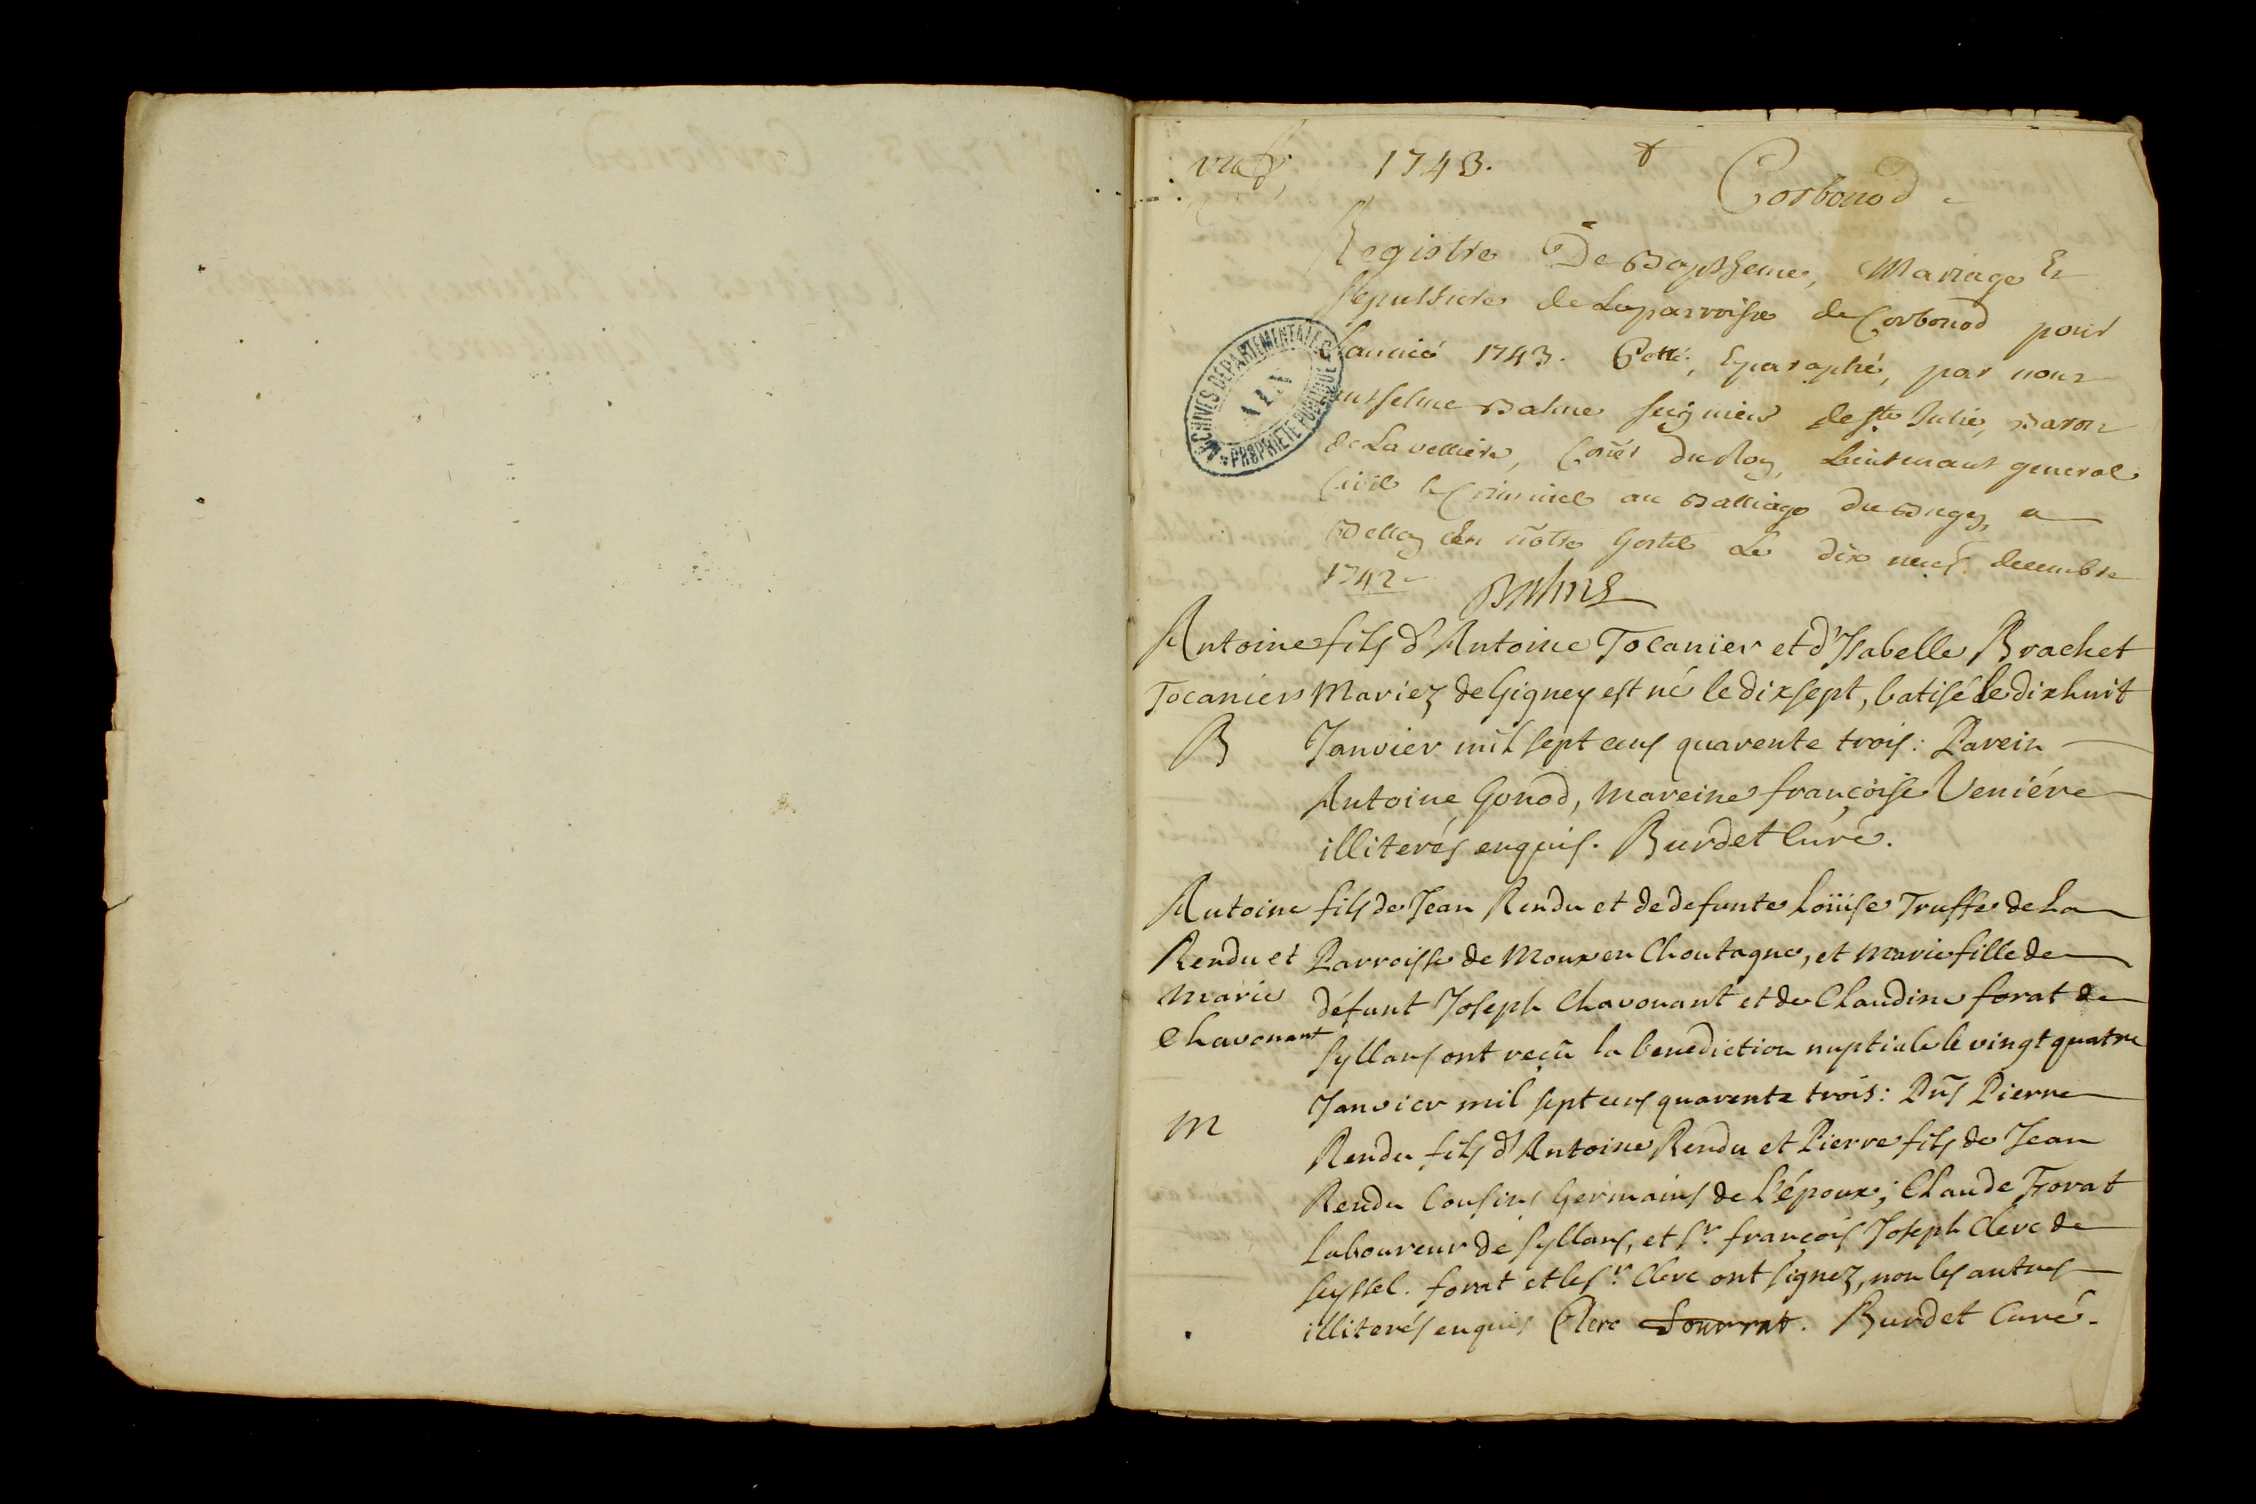 1743.
Corbonod
Registre De Baptheme, Mariage Et
Sepulture de La parroisse de Corbonod pour
Lannéé 1743. Cotté, Eparaphé, par nous
Antselme Balme seigneur de Ste Julie, Baron
de La velliere, Coñer du Roy, Lieutenant general
Civil & Criminel au Balliage du Bugey, a
Belley En nôtre hostel Le dix neuf decembre
1742
Balme
ARCHIVES DEPARTEMENTALES
AIN
PROPRIETE PUBLIQUE
Antoine fils d'Antoine Tocanier et d'Isabelle Brachet
Tocanier Mariez de Gigney est né le dix sept, batisé le dix huit
B Janvier mil sept cens quarente trois: Parein
Antoine Gonod, Mareine françoise Veniére
illiterés enquis. Burdet Curé.
Antoine fils de Jean Rendu et de defunte Loüise Truffe de La
Rendu et Parroisse de Moux en Choutagne, et Marie fille de
Marie défunt Joseph Chavonant et de Claudine forat de
Chavonant Syllans ont reçû la benediction nuptiale le vingt quatre
Janvier mil sept cens quarente trois: Pñs Pierre
M Rendu fils d'Antoine Rendu et Pierre fils de Jean
Rendu Cousins Germains de L'époux; Claude Forat
Laboureur de Syllans, et Sr. françois Joseph Clerc de
Seyssel. forat et le Sr. Clerc ont signez, non les autres
illiterés enquis Clerc Fourrat. Burdet Curé.